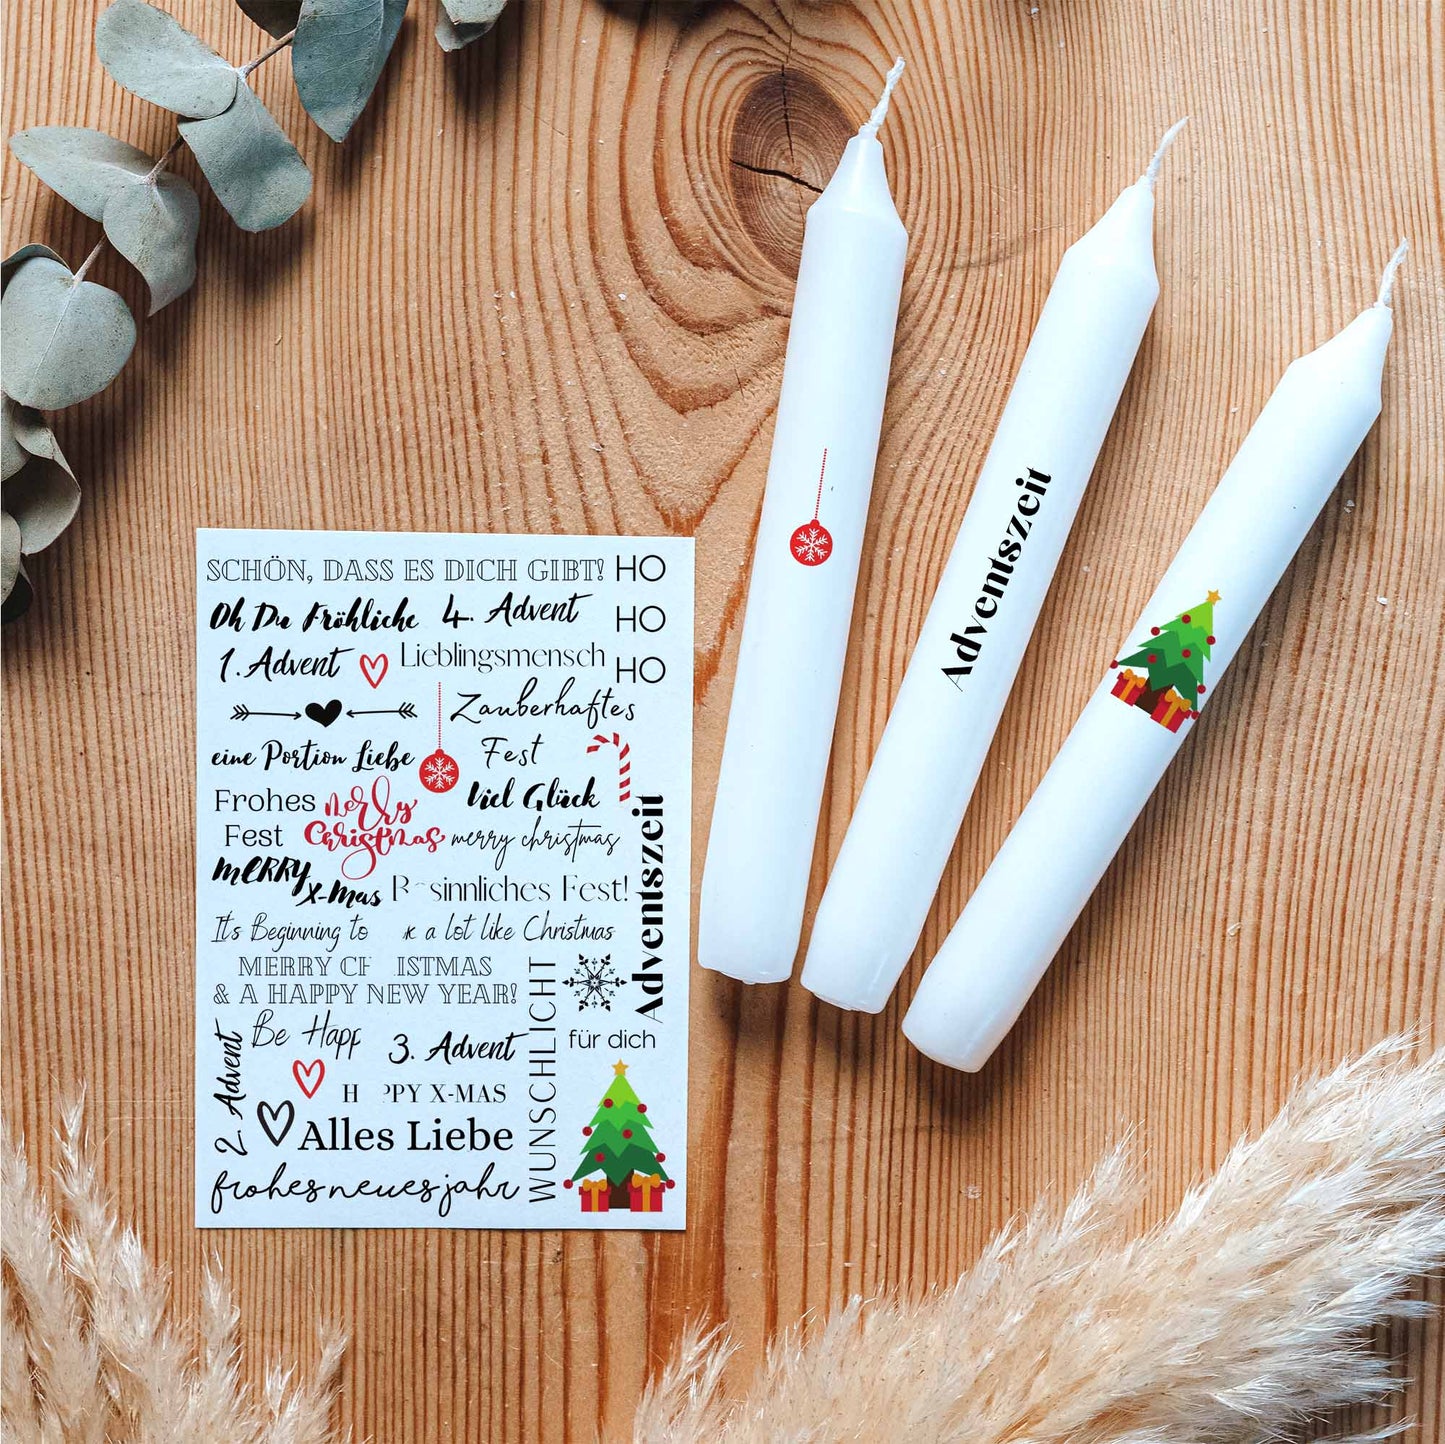 SCHÖN, DASS ES DICH GIBT!
HO
HO
HO
Oh Du Fröhliche
4. Advent
1. Advent
Lieblingsmensch
Zauberhaftes
Fest
eine Portion Liebe
Frohes
Fest
merly
Christmas
Viel Glück
merry christmas
MERRY
X-Mas
Adventszeit
It's Beginning to
a lot like Christmas
& A HAPPY NEW YEAR!
Be
3. Advent
für dich
2. Advent
X-MAS
WUNSCHLICHT
Alles Liebe
frohes neues jahr
Adventszeit